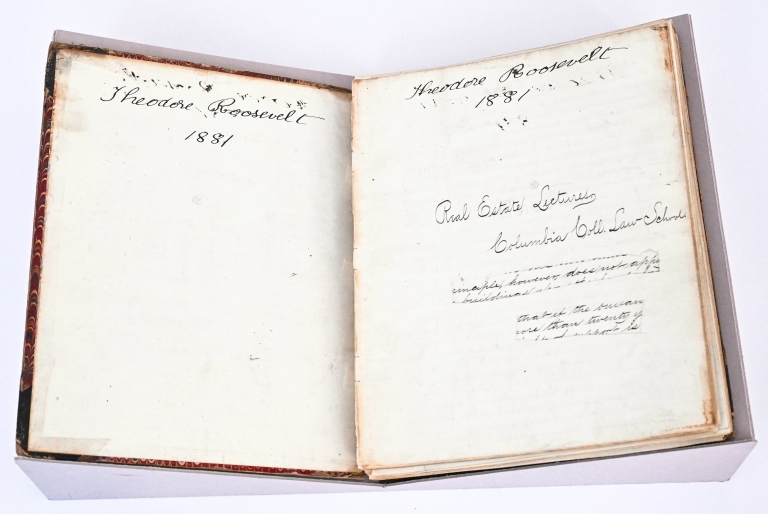 Theodore Roosevelt
1881
Theodore Roosevelt
1881
Real Estate Lectures
Columbia Coll. Law School
however, does not
buildings
that if the
than twenty